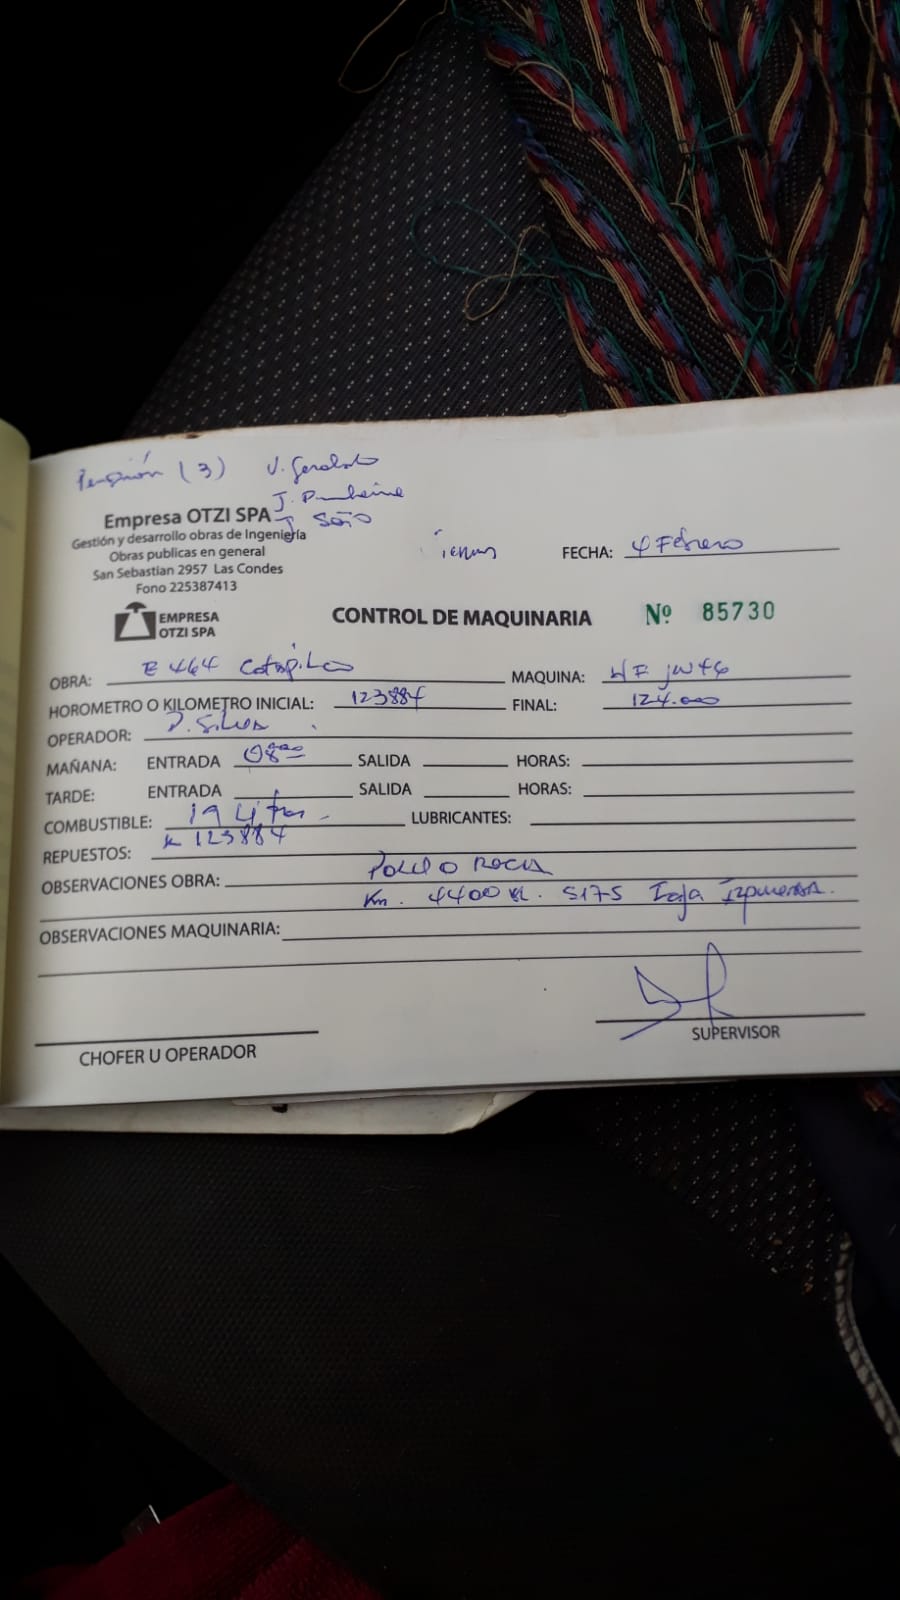 Pensión (3) V. Geraldo
J.
J. Soto
Empresa OTZI SPA
Gestión y desarrollo obras de Ingeniería
Obras publicas en general
San Sebastian 2957 Las Condes
Fono 225387413
EMPRESA
OTZI SPA
FECHA: 4 Febrero
CONTROL DE MAQUINARIA Nº 85730
OBRA: E 464 MAQUINA:
HOROMETRO O KILOMETRO INICIAL: 123884 FINAL: 124.000
OPERADOR: D. Silva
MAÑANA: ENTRADA 08 00 SALIDA HORAS:
TARDE: ENTRADA SALIDA HORAS:
COMBUSTIBLE: 19 Litros LUBRICANTES:
K 123884
REPUESTOS:
OBSERVACIONES OBRA: ROCIA
Km. 4400 5175 Faja Izquierda.
OBSERVACIONES MAQUINARIA:
CHOFER U OPERADOR
SUPERVISOR